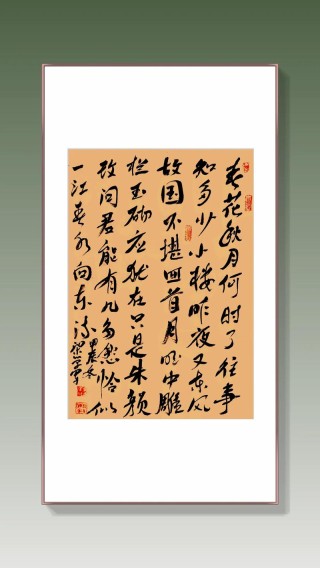 春花秋月何时了往事
知多少小楼昨夜又东风
故国不堪回首月明中雕
栏玉砌应犹在只是朱颜
改问君能有几多愁恰似
一江春水向东流
甲辰冬